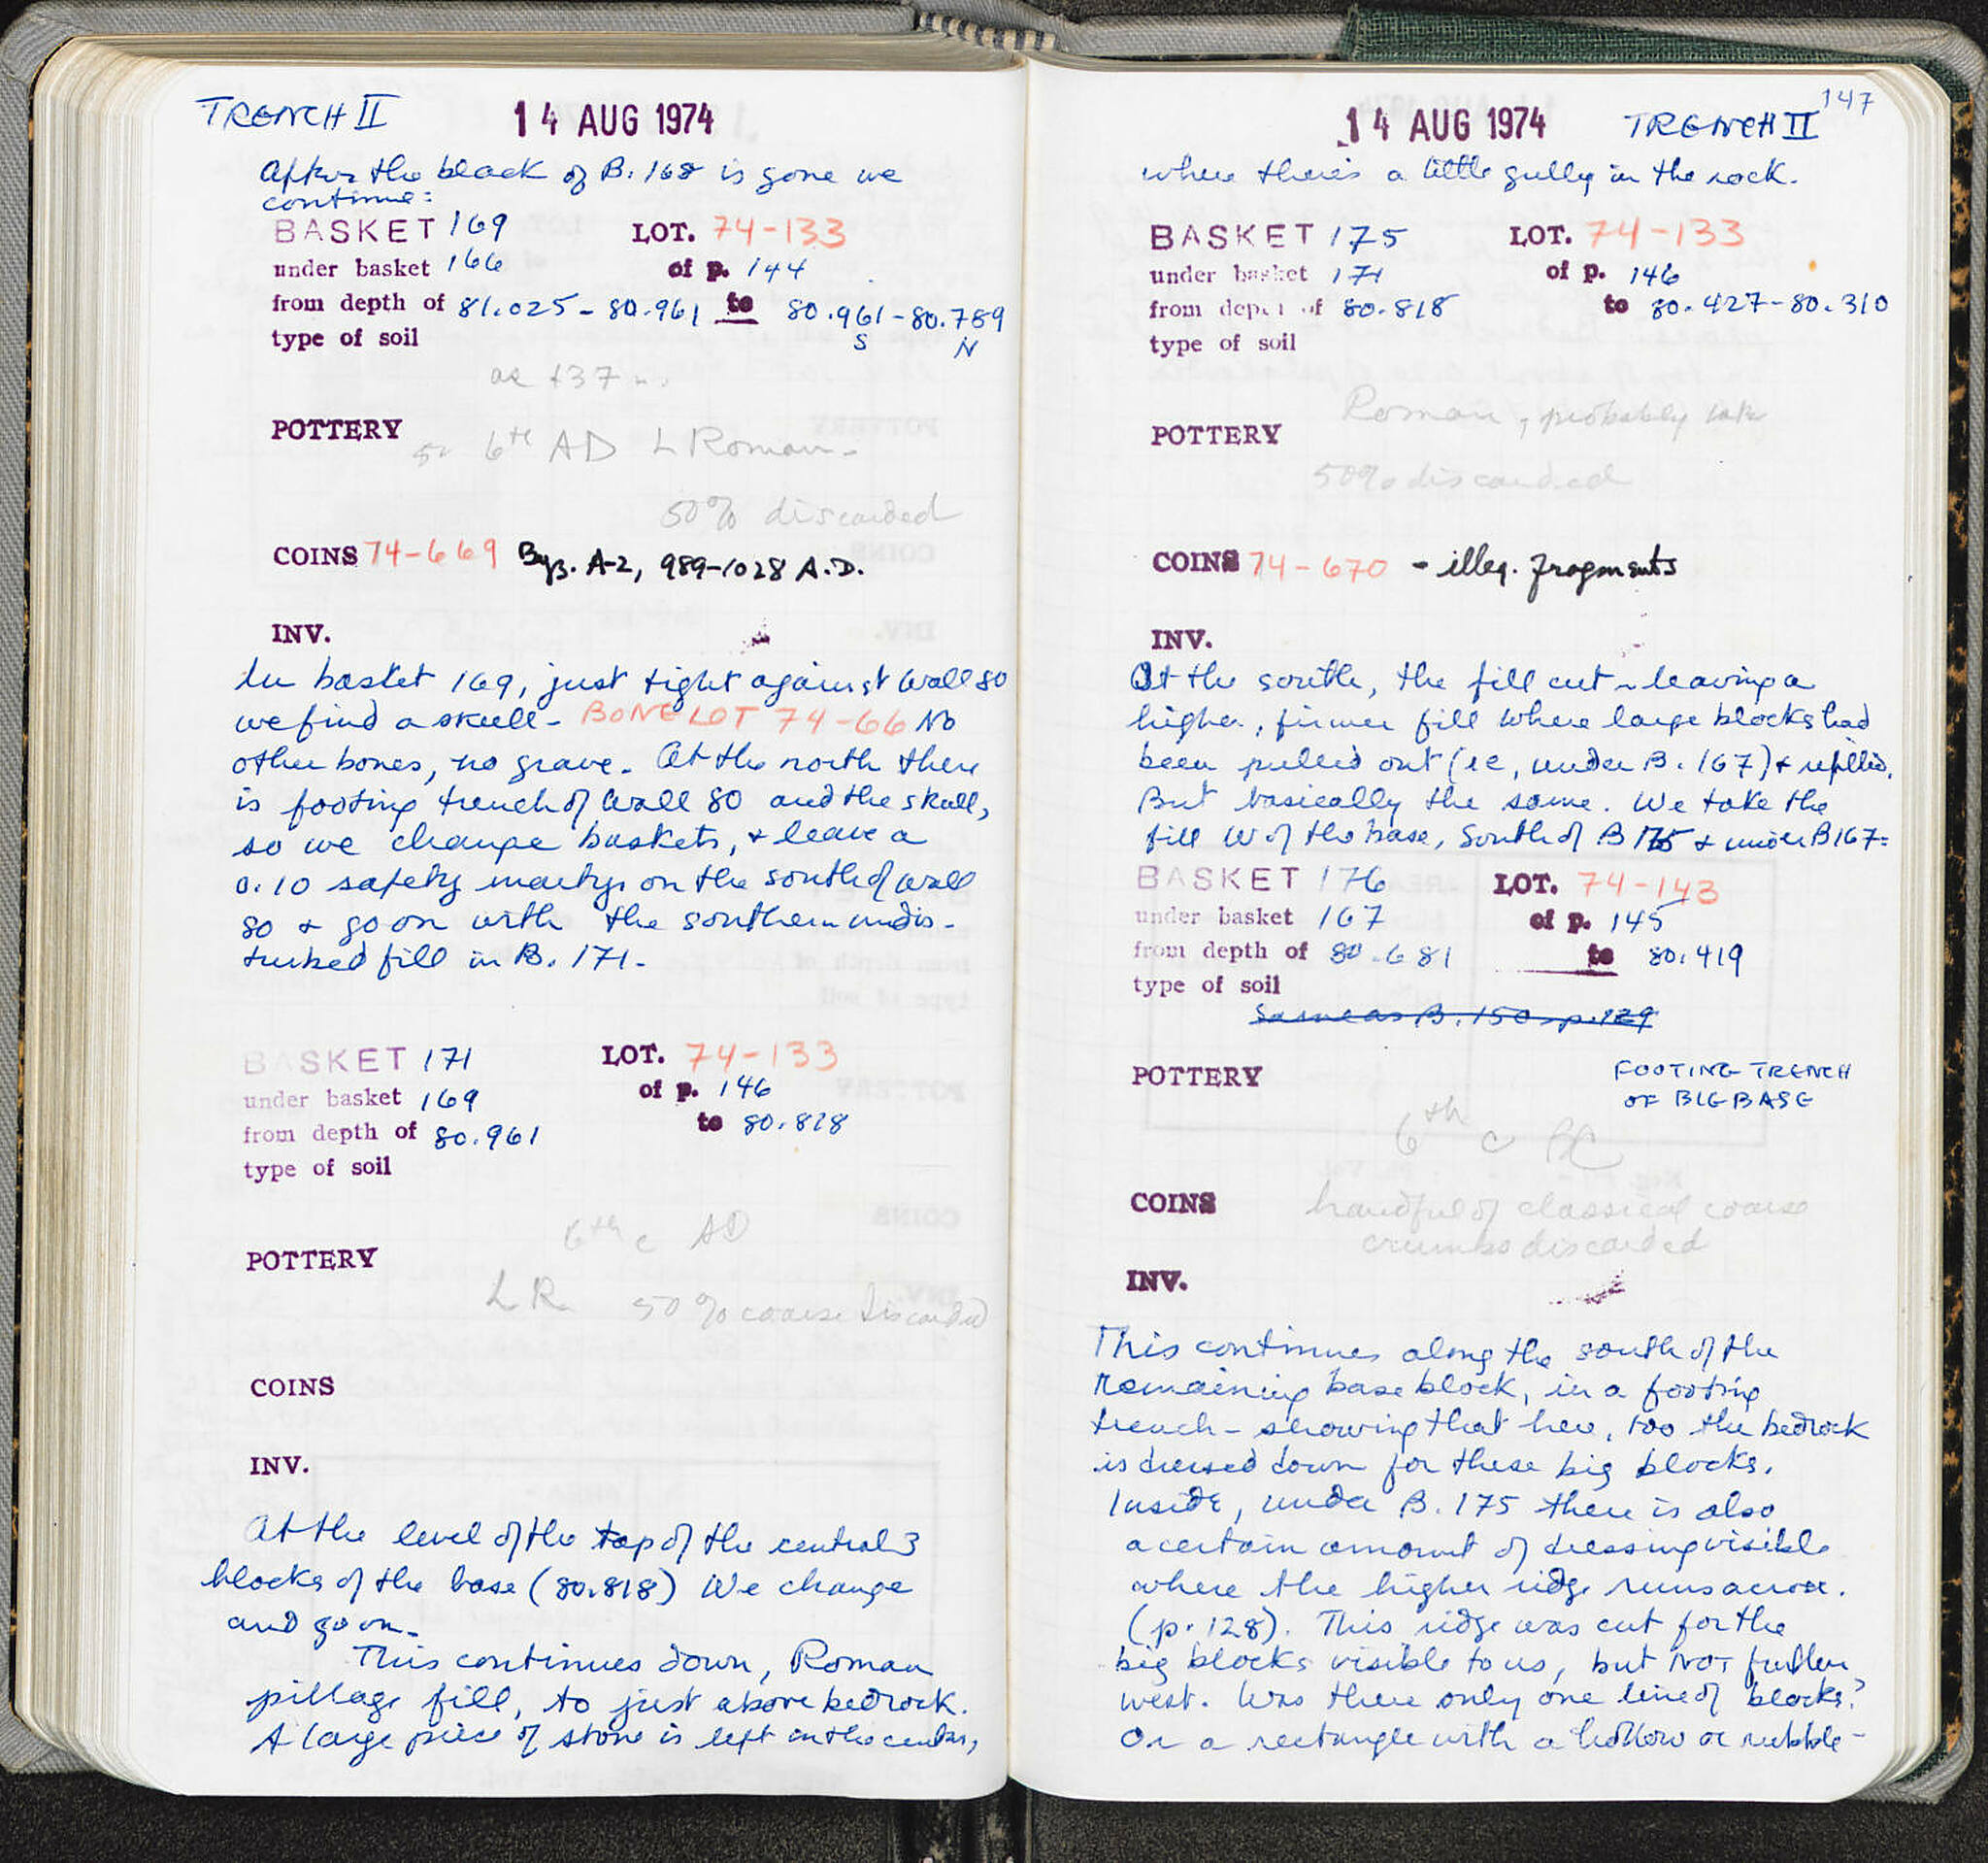 TRENCH II 14 AUG 1974
After the black of B. 168 is gone we
continue:
BASKET 169 LOT. 74-133
under basket 166 of p. 144
from depth of 81.025 - 80.961 to 80.961 - 80.789
S N
type of soil
POTTERY 6th AD L Roman -
50% discarded
COINS 74-669 Byz. A-2, 989-1028 A.D.
INV.
In basket 169, just tight against wall 80
we find a skull - BONE LOT 74-66 No
other bones, no grave. At the north there
is footing trench of wall 80 and the skull,
so we change baskets, + leave a
0.10 safety margin on the south of wall
80 + go on with the southern undis-
turbed fill in B. 171.
BASKET 171 LOT. 74-133
under basket 169 of p. 146
from depth of 80.961 to 80.818
type of soil
6th c AD
POTTERY
LR 50% coarse discarded
COINS
INV.
At the level of the top of the central 3
blocks of the base (80.818) We change
and go on.
This continues down, Roman
pillage fill, to just above bedrock.
A large piece of stone is left in the center,
147
14 AUG 1974 TRENCH II
where there's a little gully in the rock.
BASKET 175 LOT. 74-133
under basket 171 of p. 146
from depth of 80.818 to 80.427-80.310
type of soil
Roman, probably late
POTTERY
50% discarded
COINS 74-670 - illeg. fragments
INV.
At the south, the fill cut leaving a
higher, firmer fill where large blocks had
been pulled out (ie, under B. 167) + refilled.
But basically the same. We take the
fill W of the base, South of B 175 + under B167:
BASKET 176 LOT. 74-143
under basket 167 of p. 145
from depth of 80.681 to 80.419
type of soil
Same as B. 150 p. 129
POTTERY FOOTING TRENCH
OF BIG BASE
6th c BC
COINS handful of classical coarse
crumbs discarded
INV.
This continues along the south of the
remaining base block, in a footing
trench - showing that here, too the bedrock
is dressed down for these big blocks.
Inside, under B. 175 there is also
a certain amount of dressing visible
where the higher ridge runs across.
(p. 128). This ridge was cut for the
big blocks visible to us, but NOT further
west. Was there only one line of blocks?
Or a rectangle with a hollow or rubble-